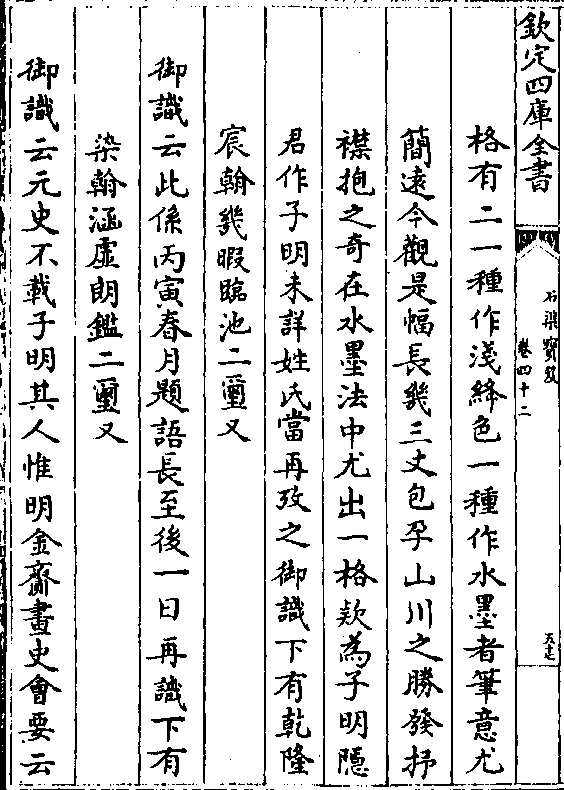 欽定四庫全書
石渠寳笈
卷四十二
五七
格有二一種作淺絳色一種作水墨者筆意尤
簡逺今觀是幅長幾三丈包孕山川之勝發抒
襟抱之奇在水墨法中尤出一格欵為子明隱
君作子明未詳姓氏當再攷之御識下有乾隆
宸翰幾暇臨池二璽又
御識云此係丙寅春月題語長至後一日再識下有
染翰涵虛朗鑑二璽又
御識云元史不載子明其人惟明金齋畫史會要云